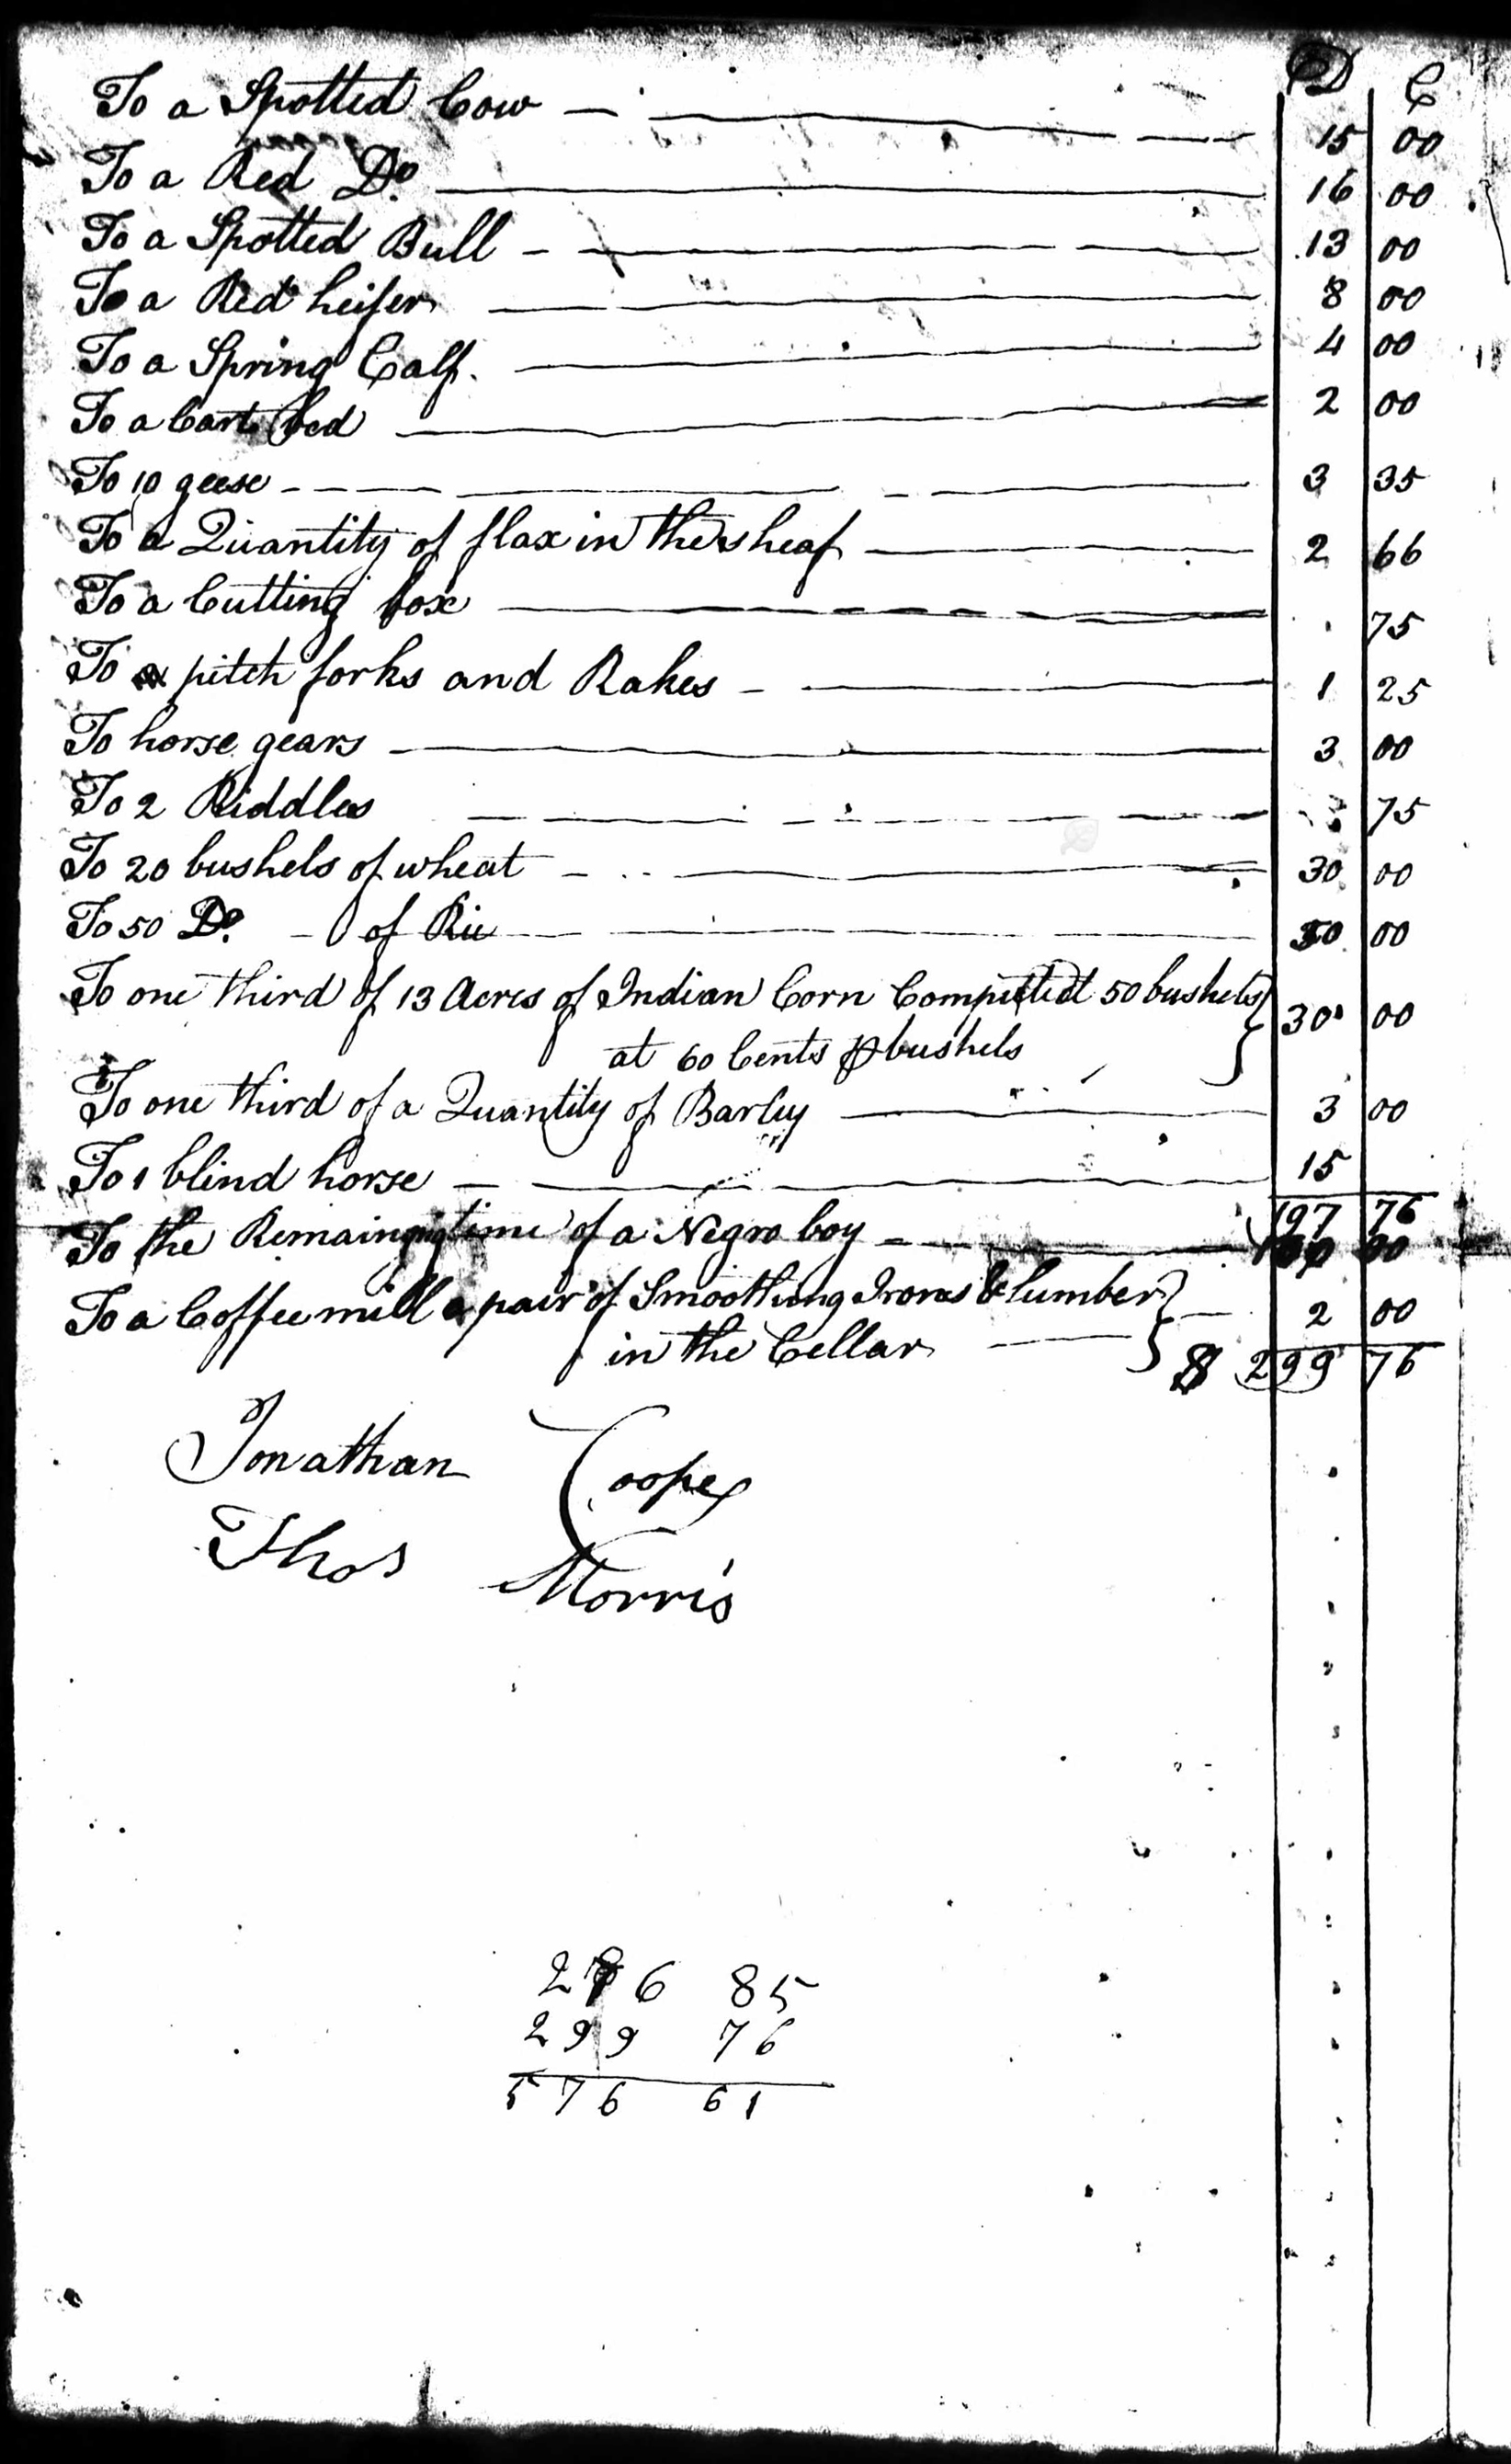 D C
To a Spotted Cow 15 00
To a Red Do. 16 00
To a Spotted Bull 13 00
To a Red heifer 8 00
To a Spring Calf. 4 00
To a Cart bed 2 00
To 10 geese 3 35
To a Quantity of flax in the sheaf 2 66
To a Cutting box 75
To pitch forks and Rakes 1 25
To horse gears 3 00
To 2 Riddles 75
To 20 bushels of wheat 30 00
To 50 Do. of Rie 50 00
To one third of 13 Acres of Indian Corn Computed 50 bushels
at 60 Cents ⅌ bushels } 30 00
To one third of a Quantity of Barley 3 00
To 1 blind horse 15
197 76
To the Remaining time of a Negro boy 100 00
To a Coffee mill a pair of Smoothing Irons & lumber
in the Cellar } 2 00
$ 299 76
Jonathan Cooper
Thos Morris
276 85
299 76
576 61